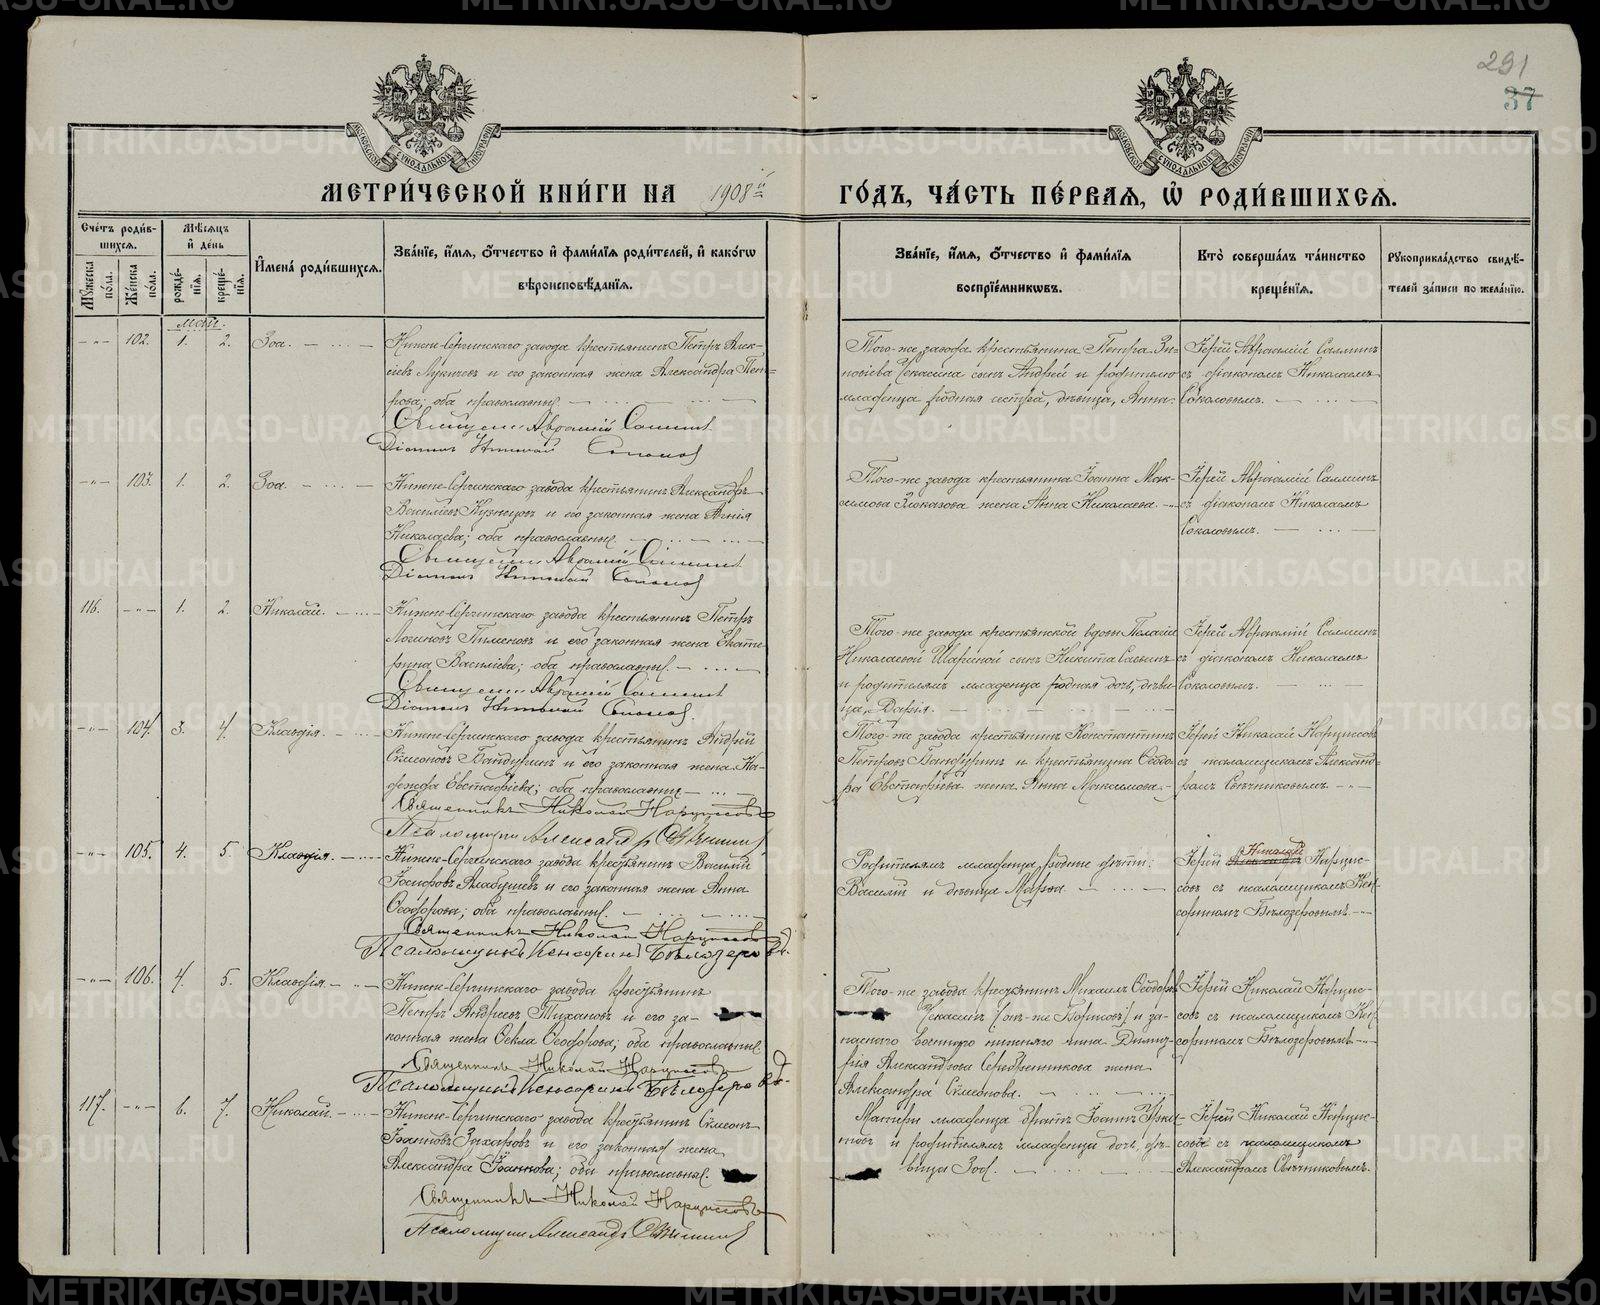 291
37
МОСКОВСКОЙ СѴНОДАЛЬНОЙ ТИПОГРАФІИ
МОСКОВСКОЙ СѴНОДАЛЬНОЙ ТИПОГРАФІИ
МЕТРИ́ЧЕСКОЙ КНИ́ГИ НА 1908й ГО́ДЪ, ЧА́СТЬ ПЕ́РВАЯ, Ѡ҆ РОДИ́ВШИХСЯ.
Сче́тъ роди́вшихся.
Му́жеска по́ла.
Же́нска по́ла.
Мѣ́сяцъ и҆ де́нь
рожде́нїя.
креще́нїя.
И҆мена̀ роди́вшихся.
Зва́нїе, и҆́мя, ѻ҆́тчество и҆ фами́лїя роди́телей, и҆ како́гѡ
вѣроисповѣ́данїя.
Зва́нїе, и҆́мя, ѻ҆́тчество и҆ фами́лїя
воспрїе́мникѡвъ.
Кто̀ соверша́лъ та́инство
креще́нїя.
Рꙋкоприкла́дство свидѣ́-
телей за́писи по жела́нїю.
Май.
102. 1. 2. Зоа.
Нижне-Сергинскаго завода крестьянинъ Петръ Алек-
сѣевъ Лукичевъ и его законная жена Александра Пет-
рова; оба православные.
Священн. Авраамій Салмин
Діаконъ Николай Соколов
Того-же завода крестьянина Петра Зи-
новіева Чекасина сынъ Андрей и родителю
младенца родная сестра, дѣвица, Анна.
Іерей Авраамій Салминъ
съ діакономъ Николаемъ
Соколовымъ.
103. 1. 2. Зоа.
Нижне-Сергинскаго завода крестьянинъ Александръ
Василіевъ Кузнецовъ и его законная жена
Николаева; оба православные.
Священн. Авраамій Салмин
Діаконъ Николай Соколов
Того-же завода крестьянина Іоанна Мак-
симова Злоказова жена Анна Николаева.
Іерей Авраамій Салминъ
съ діакономъ Николаемъ
Соколовымъ.
116. 1. 2. Николай.
Нижне-Сергинскаго завода крестьянинъ Петръ
Логиновъ Пименовъ и его законная жена Екате-
рина Василіева; оба православные.
Священн. Авраамій Салмин
Діаконъ Николай Соколов
Того-же завода крестьянской вдовы Пелагіи
Николаевой Шариной сынъ Никита Саввинъ
и родителямъ младенца родная дочь, дѣви-
ца, Дарія.
Іерей Авраамій Салминъ
съ діакономъ Николаемъ
Соколовымъ.
104. 3. 4. Клавдія.
Нижне-Сергинскаго завода крестьянинъ Андрей
Сѵмеоновъ Бандуринъ и его законная жена На-
дежда Евстафіева; оба православные.
Священникъ Николай Нарциссовъ
Псаломщик Александр Свѣчников
Того-же завода крестьянинъ Константинъ
Петровъ Бандуринъ и крестьянина Ѳеодо-
ра Евстафіева жена Анна Максимова.
Іерей Николай Нарциссовъ
съ псаломщикомъ Александ-
ромъ Свѣчниковымъ.
105. 4. 5. Клавдія.
Нижне-Сергинскаго завода крестьянинъ Василій
Іосифовъ Алабушевъ и его законная жена Анна
Ѳеодорова; оба православные.
Священникъ Николай Нарциссовъ
Псаломщикъ Кенсоринъ Бѣлозеровъ.
Родителямъ младенца родные дѣти:
Василій и дѣвица Марѳа.
Іерей Николай Нарцис-
совъ съ псаломщикомъ Кен-
сориномъ Бѣлозеровымъ.
106. 4. 5. Клавдія.
Нижне-Сергинскаго завода крестьянинъ
Петръ Андреевъ Тихановъ и его за-
конная жена Ѳекла Ѳеодорова; оба православные.
Священникъ Николай Нарциссовъ
Псаломщикъ Кенсоринъ Бѣлозеровъ.
Того-же завода крестьянинъ Михаилъ Ѳеодоровъ
Чекасинъ (онъ-же Борисовъ) и за-
паснаго военнаго нижняго чина Димит-
рія Александрова Серебренникова жена
Александра Сѵмеонова.
Іерей Николай Нарцис-
совъ съ псаломщикомъ Кен-
сориномъ Бѣлозеровымъ.
117. 6. 7. Николай.
Нижне-Сергинскаго завода крестьянинъ Сѵмеонъ
Іоанновъ Захаровъ и его законная жена
Александра Іоаннова; оба православные.
Священникъ Николай Нарциссовъ
Псаломщик Александр Свѣчников
Матери младенца братъ Іоаннъ
и родителямъ младенца дочь, дѣ-
вица Зоя.
Іерей Николай Нарцис-
совъ съ псаломщикомъ
Александромъ Свѣчниковымъ.
METRIKI.GASO-URAL.RU